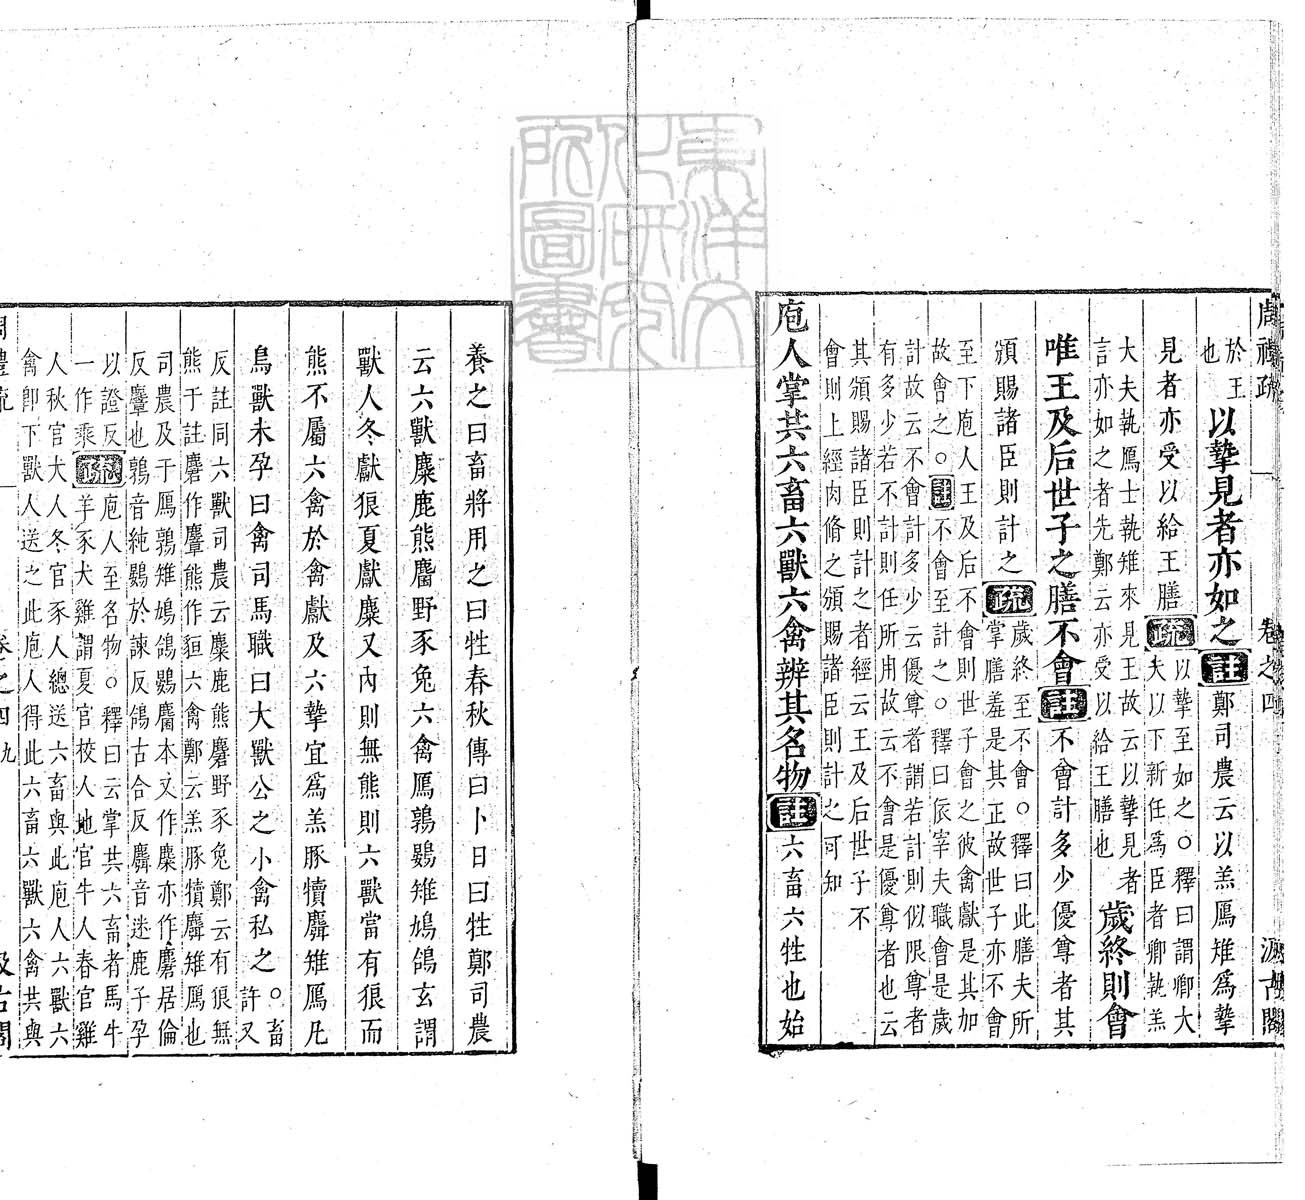 周禮疏 卷之四 汲古閣
於王
也
以摯見者亦如之註鄭司農云以羔鴈雉爲摯
見者亦受以給王膳疏
以摯至如之○釋曰謂卿大
夫以下新任爲臣者卿執羔
大夫執鴈士執雉來見王故云以摯見者
言亦如之者先鄭云亦受以給王膳也
歲終則會
唯王及后世子之膳不會註不會計多少優尊者其
頒賜諸臣則計之疏
歲終至不會○釋曰此膳夫所
掌膳羞是其正故世子亦不會
至下庖人王及后不會則世子會之彼禽獻是其加
故會之○註不會至計之○釋曰依宰夫職會是歲
計故云不會計多少云優尊者謂若計則似限尊者
有多少若不計則任所用故云不會是優尊者也云
其頒賜諸臣則計之者經云王及后世子不
會則上經肉脩之頒賜諸臣則計之可知
庖人掌共六畜六獸六禽辨其名物註六畜六牲也始
養之曰畜將用之曰牲春秋傳曰卜日曰牲鄭司農
云六獸麋鹿熊麕野豕兔六禽鴈鶉鷃雉鳩鴿玄謂
獸人冬獻狼夏獻麋又內則無熊則六獸當有狼而
熊不屬六禽於禽獻及六摯宜爲羔豚犢麛雉鴈凡
鳥獸未孕曰禽司馬職曰大獸公之小禽私之
○畜
許又
反註同六獸司農云麋鹿熊麕野豕兔鄭云有狼無
熊于註麕作麞熊作狟六禽鄭云羔豚犢麛雉鴈也
司農及于鴈鶉雉鳩鴿鷃麕本又作麋亦作麕居倫
反麞也鶉音純鷃於諫反鴿古合反麛音迷鹿子孕
以證反
一作乘
疏
庖人至名物○釋曰云掌共六畜者馬牛
羊豕犬雞謂夏官校人地官牛人春官雞
人秋官犬人冬官豕人總送六畜與此庖人六獸六
禽卽下獸人送之此庖人得此六畜六獸六禽共與
周禮疏 卷之四 九 汲古閣
東洋文化研究所圖書